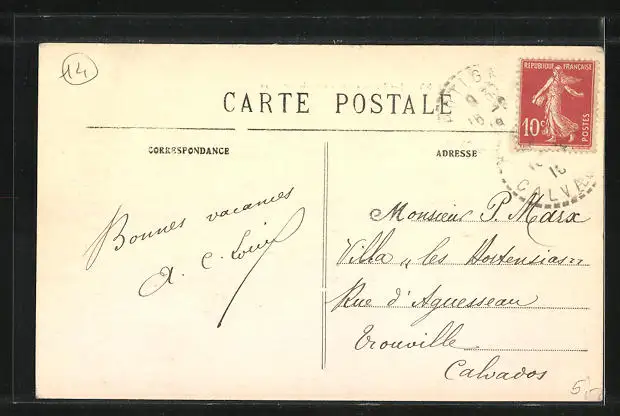 14
CARTE POSTALE
RÉPUBLIQUE FRANÇAISE
10c
POSTES
CALVA
CORRESPONDANCE
ADRESSE
Bonnes vacances
Monsieur P. Marx
Villa „ les Hortensias "
Rue d'Aguesseau
Trouville
Calvados
5,-